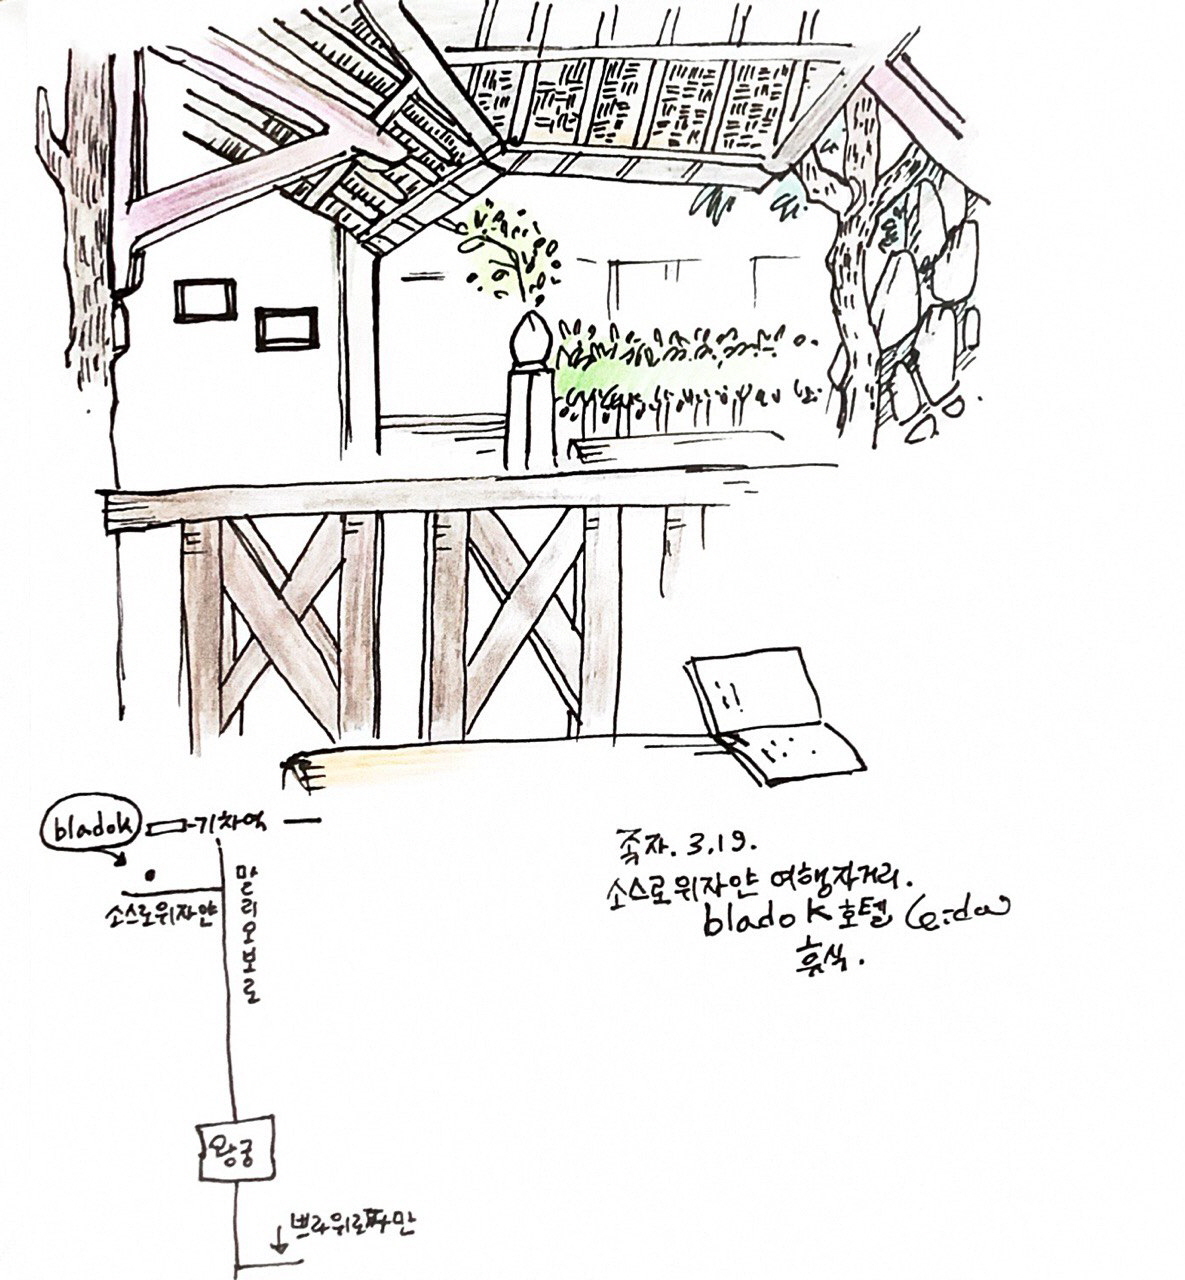 bladok
기차역
말리오보로
소스로위자얀
왕궁
쁘라위로따만
족자. 3.19.
소스로위자얀 여행자거리.
bladok 호텔
휴식.